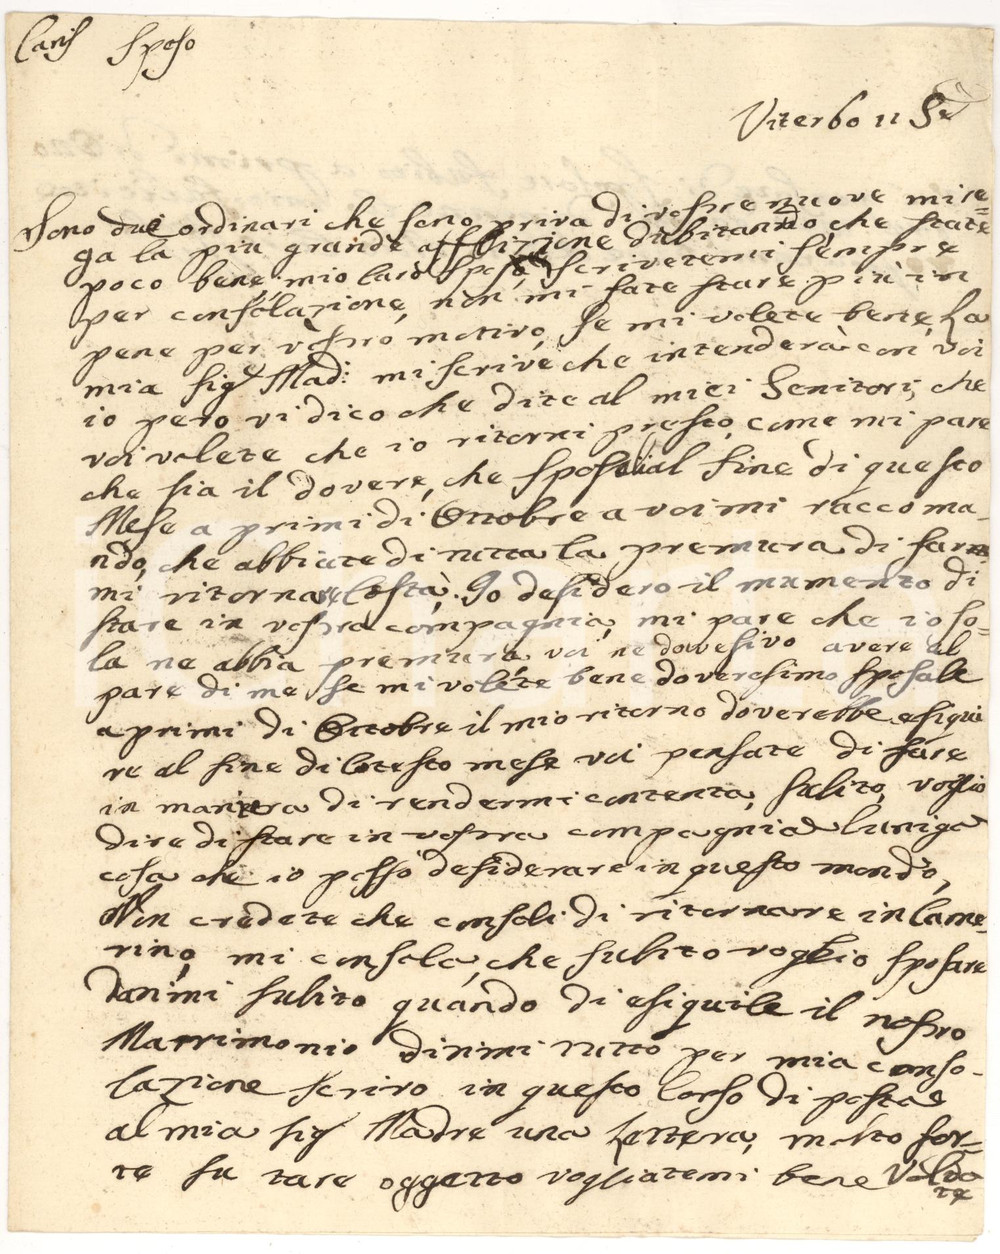 Caris Sposo
Viterbo 11 Se
Sono due ordinari che sono priva di vostre nuove mi re=
ga la piu grande afflizione dubitando che state
poco bene, mio caro Sposo, scrivetemi sempre
per consolazione, non mi fate stare più in
pene per vostro motivo, se mi volete bene, La
mia Sig Mad: mi scrive che intenderà con voi
io pero vi dico che dite al miei Genitori, che
voi volete che io ritorni presto, come mi pare
che sia il dovere, che sposial fine di questo
Mese a primi di Ottobre a voi mi raccoma-
ndo, che abbiate di tutta la premura di far
mi ritornare Costà. Io desidero il mumento di
stare in vostra compagnia, mi pare che io so-
la ne abbia premura, voi ne dovesivo avere al
pare di me, se mi volete bene doveresimo sposale
a primi di Ottobre il mio ritorno doverebbe esiqui
re al fine di Cotesto mese voi pensate di fare
in maniera di rendermi contenta, subito, voglio
dire di stare in vostra compagnia Luniga
cosa che io posso desiderare in questo mondo,
Non credete che consoli di ritornare in Came-
rino, mi consola, che subito voglio sposare
Danimi subito quando di esiquile il nostro
Matrimonio dinimi tutto per mia conso-
lazione scrivo in questo Corso di posta
al mia Sig Madre una Lettera, molto for-
te su tare oggetto vogliatemi bene